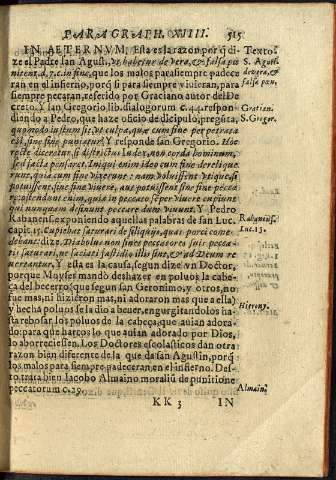 PARAGRAPH. XIIII. 515
IN AETERNVM. Esta es la razon por q̃ di-
ze el Padre san Agusti. vt habetur de vera, & falsa pœ
nitent. d. 7. c. in fine, que los malos para siempre padece
ran en el infierno, porq̃ si para siempre viuieran, para
siempre pecaran, referido por Graciano autor del De
creto. Y san Gregorio lib. dialogorum c. 44. respon-
diendo a Pedro, que haze oficio de dicipulo, pregũta,
quomodo iustum sit, vt culpa, quæ cum fine perpetrata
est, sine fine puniatur? Y responde san Gregorio. Hoc
recte diceretur, si districtus Iudex, non corda hominum,
sed facta pensaret. Iniqui enim ideo cum fine delique
runt, quia cum fine vixerunt: nam voluissent vtique si
potuissent, sine fine viuere, aut potuissent sine fine pecca
re, ostendunt enim, quia in peccato semper viuere cupiunt
qui nunquam desinunt peccare dum viuunt. Y Pedro
Rabanense, exponiendo aquellas palabras de san Luc.
capit. 15. Cupiebat saturari de siliquis, quas porci come
debant: dize. Diabolus non sinit peccatores suis pecca-
tis saturari, ne satiati fastidio illis sint, & ad Deum re
uertantur. Y esta es la causa, segun dize vn Doctor,
porque Moyses mandò deshazer en poluos la cabe-
ça del becerro (que segun san Geronimo, y otros, no
fue mas, ni hizieron mas, ni adoraron mas que a ella)
y hecha poluos se la dio a beuer, engurgitandolos has
ta rebosar los poluos de la cabeça, que auian adora-
do: para que hartos lo que auian adorado por Dios,
lo aborreciessen. Los Doctores escolasticos dan otra
razon bien diferente de la que da san Agustin, porq̃
los malos para siempre padeceran en el infierno. Des-
to trata bien Iacobo Almaino moraliũ de punitione
peccatorum c. 29.
KK 3 IN
Texto.
S. Agusti.
de vera, &
falsa pœn.
Gratian.
S. Gregor.
Rabanẽse.
Luc. 15.
Hierony.
Almain.